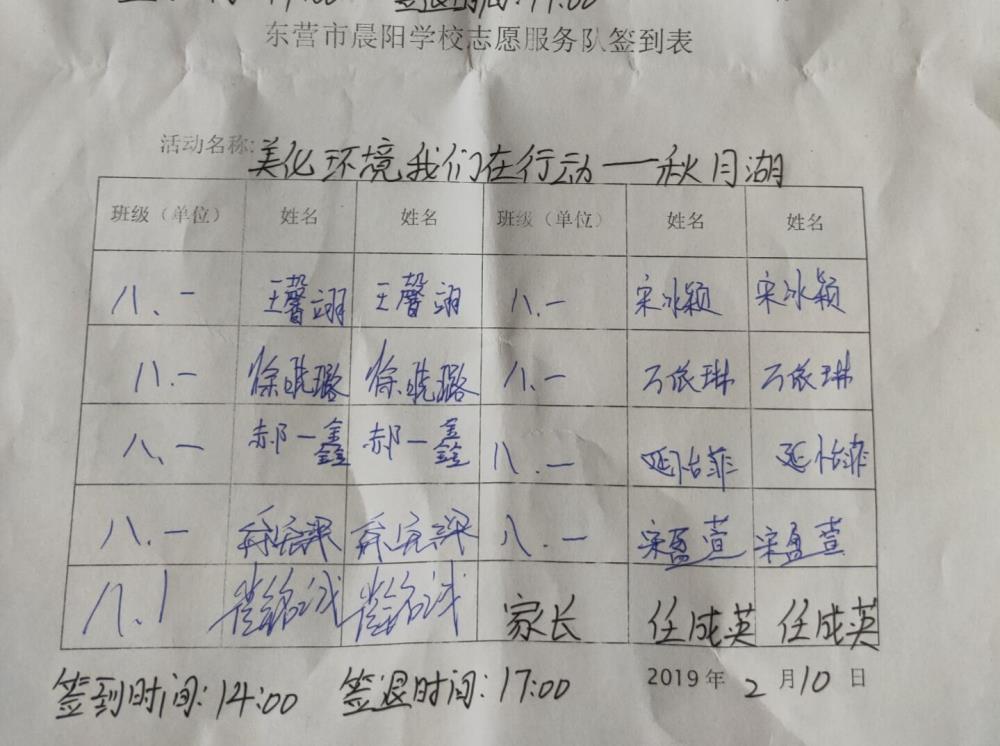 签退时间:17:00
东营市晨阳学校志愿服务队签到表
活动名称:美化环境我们在行动——秋月湖
班级（单位） 姓名 姓名 班级（单位） 姓名 姓名
八、一 王馨翊 王馨翊 八.一 宋冰颖 宋冰颖
八.一 徐晓璐 徐晓璐 八.一 万依琳 万依琳
八、一 郝一鑫 郝一鑫 八.一 延怡菲 延怡菲
八、一 八.一 宋盈萱 宋盈萱
八.1 家长 任成英 任成英
签到时间:14:00 签退时间:17:00 2019年2月10日